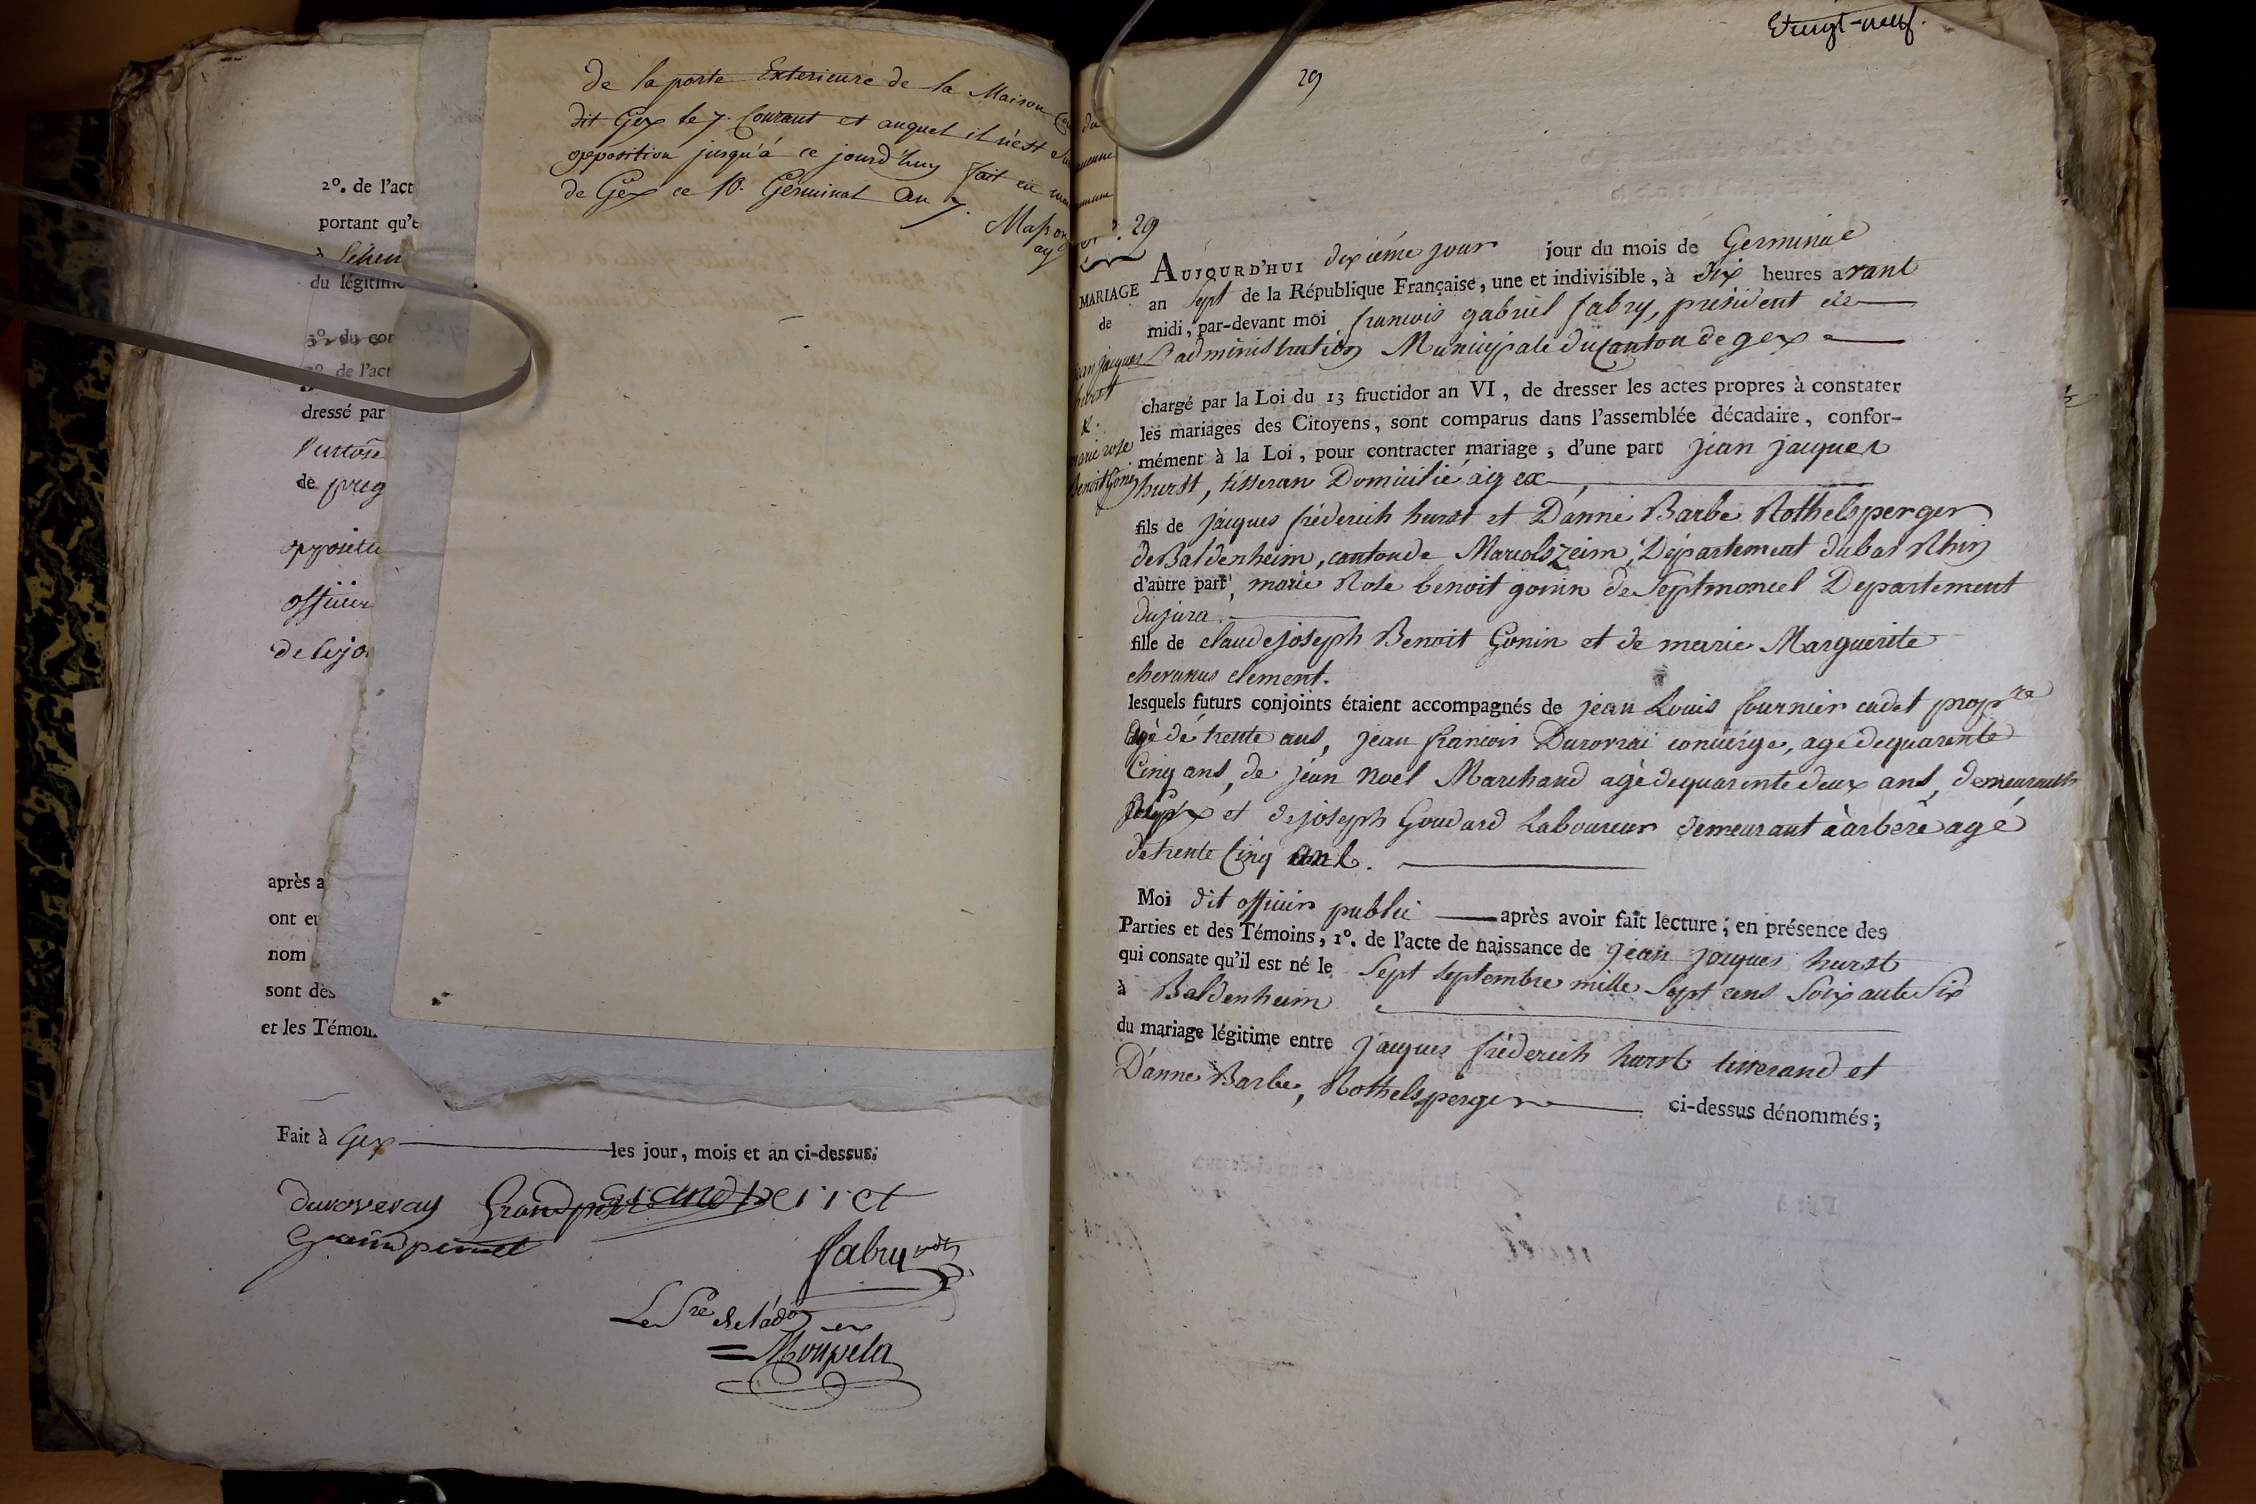 de la porte Exterieure de la Maison
dit Gex le 7. Courant et auquel il n'est
opposition jusqu'à ce jourd'huy fait en
de Gex ce 10. Germinal an 7.
2º. de l'act
portant qu'e
à
du légitime
3º. du con
de l'act
dressé par
de
opposition
officier
après a
ont eu
nom
sont des
et les Témoin
Fait à Gex les jour, mois et an ci-dessus.
duroveray Grandperret
Grandperret
fabry
Le Sre de l'adon
29
29
MARIAGE
de
jean jacques
hurst
&.
marie rose
benoit Gonin
AUJOURD'HUI dixième jour jour du mois de Germinal
an Sept de la République Française, une et indivisible, à dix heures avant
midi, par-devant moi francois gabriel fabry, président de
L'administration Municipale du Canton de gex
chargé par la Loi du 13 fructidor an VI, de dresser les actes propres à constater
les mariages des Citoyens, sont comparus dans l'assemblée décadaire, confor-
mément à la Loi, pour contracter mariage, d'une part jean jacques
hurst, tisseran Domicilié à gex
fils de jacques fréderich hurst et D'anne Barbe Rothelsperger
de Baldenheim, canton de Marcolszeim, Département du bas Rhin
d'autre part, marie Rose benoit gonin de Septmoncel Departement
du jura.
fille de claude joseph Benoit Gonin et de marie Marguerite
chevanus clement.
lesquels futurs conjoints étaient accompagnés de jean Louis fournier cadet propre
agé de trente ans, jean francois Duroveai concierge, agé de quarente
Cinq ans, de jean noel Marchand agé de quarente deux ans, demeurants
et de joseph Goudard Laboureur demeurant à arbere agé
de trente Cinq ans.
Moi dit officier public après avoir fait lecture, en présence des
Parties et des Témoins, 1º. de l'acte de naissance de jean jacques hurst
qui consate qu'il est né le Sept septembre mille Sept cens Soixante Six
à Baldenheim
du mariage légitime entre jacques fréderich hurst tisserand et
D'anne Barbe, Rothelsperger ci-dessus dénommés;